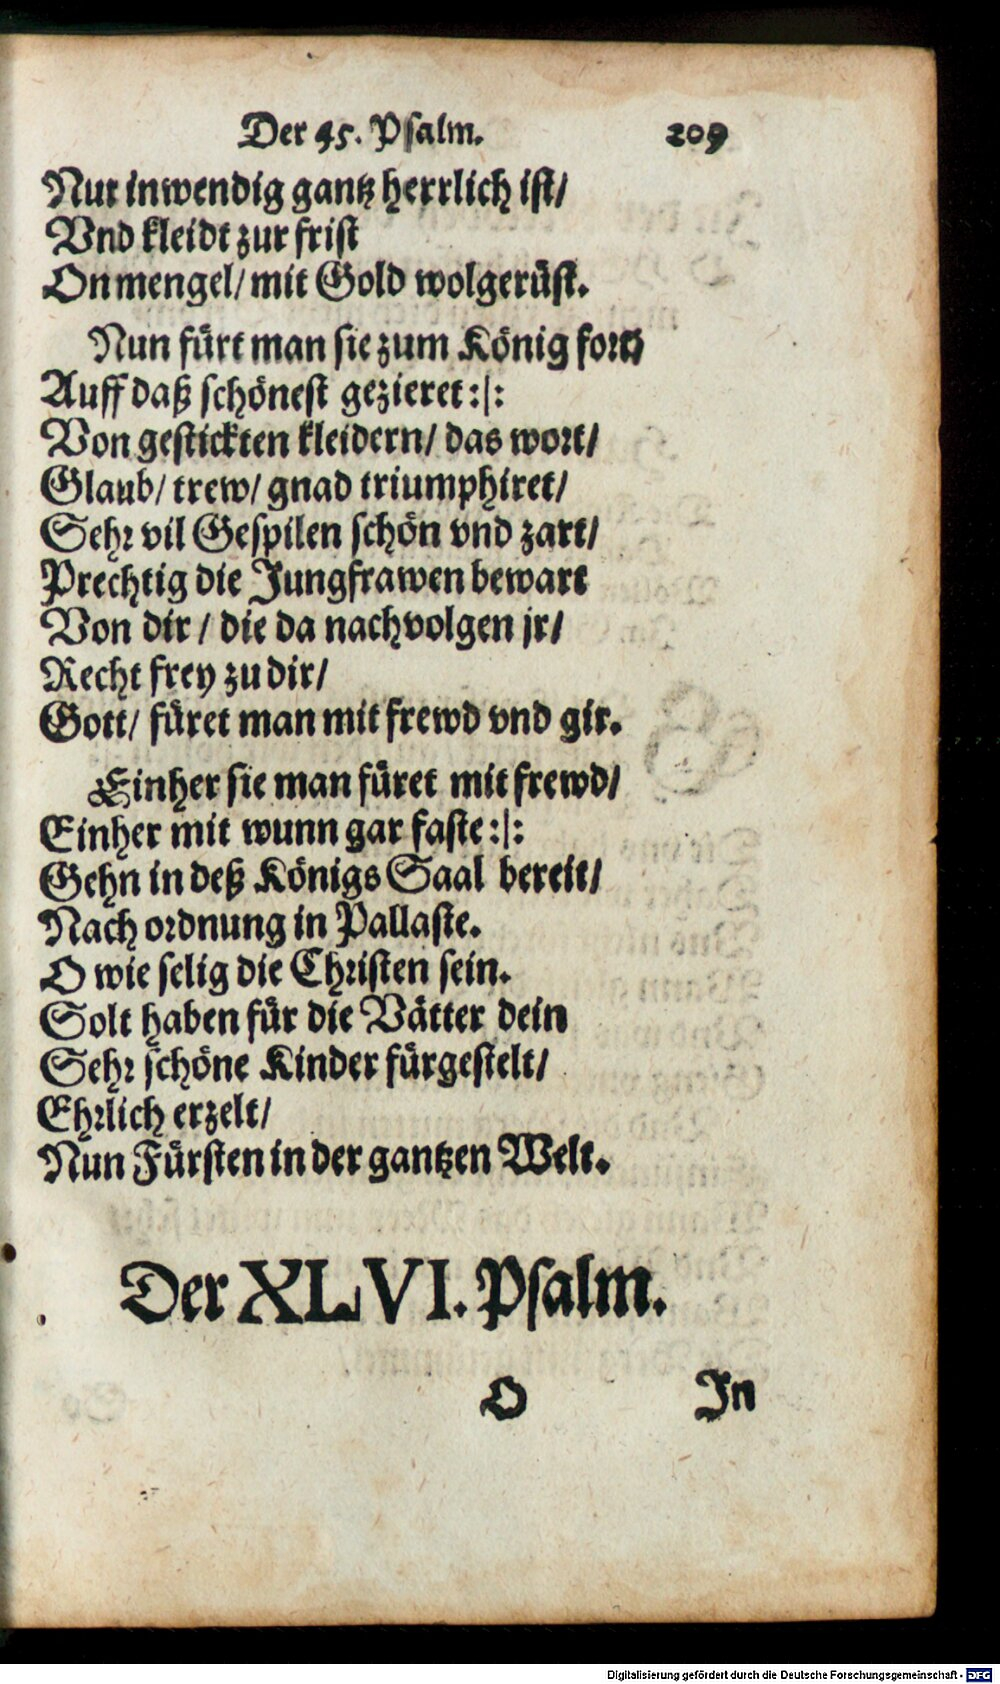 Der 45. Psalm. 209
Nur inwendig gantz herrlich ist/
Vnd kleidt zur frist
On mengel/ mit Gold wolgerüst.
Nun fürt man sie zum König fort/
Auff daß schönest gezieret :|:
Von gestickten kleidern/ das wort/
Glaub/ trew/ gnad triumphiret/
Sehr vil Gespilen schön vnd zart/
Prechtig die Jungfrawen bewart
Von dir / die da nachvolgen jr/
Recht frey zu dir/
Gott/ füret man mit frewd vnd gir.
Einher sie man füret mit frewd/
Einher mit wunn gar faste :|:
Gehn in deß Königs Saal bereit/
Nach ordnung in Pallaste.
O wie selig die Christen sein.
Solt haben für die Vätter dein
Sehr schöne Kinder fürgestelt/
Ehrlich erzelt/
Nun Fürsten in der gantzen Welt.
Der XLVI. Psalm.
O In
Digitalisierung gefördert durch die Deutsche Forschungsgemeinschaft - DFG